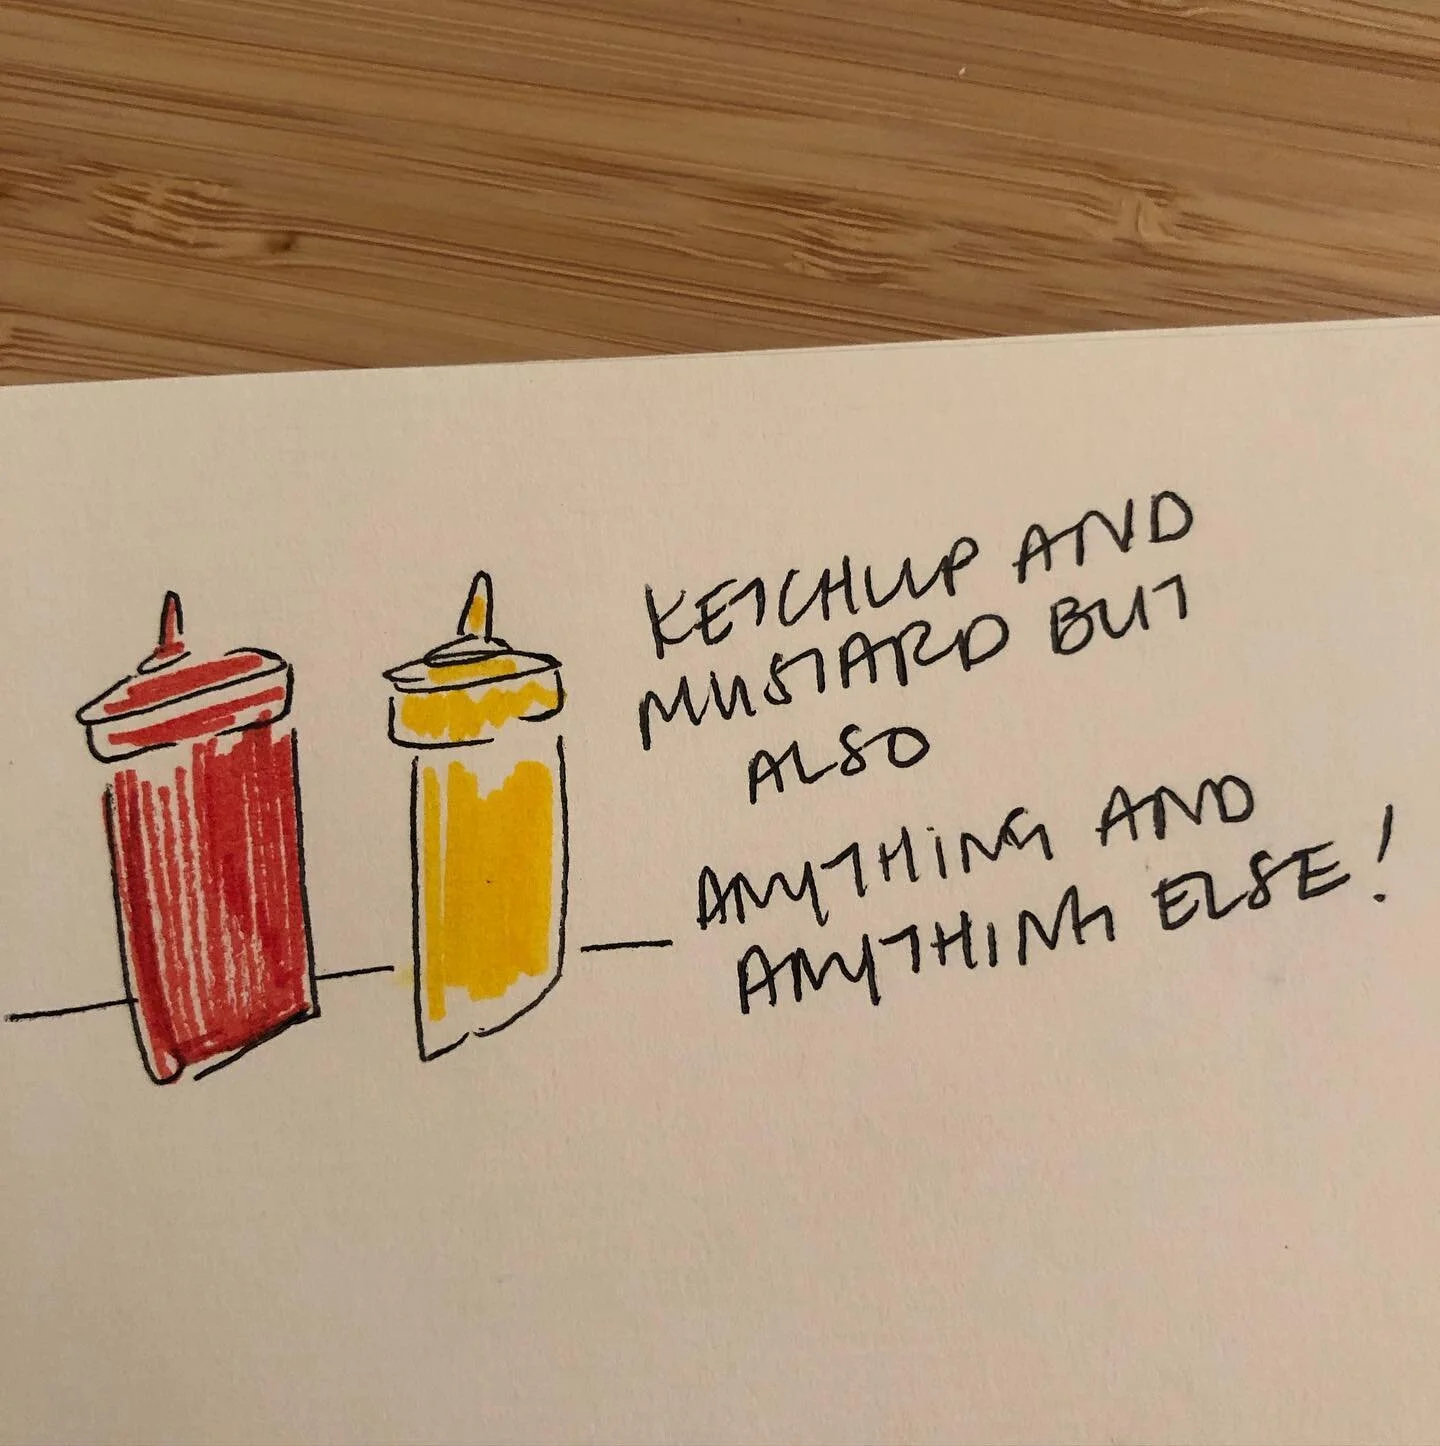 KETCHUP AND
MUSTARD BUT
ALSO
ANYTHING AND
ANYTHING ELSE!